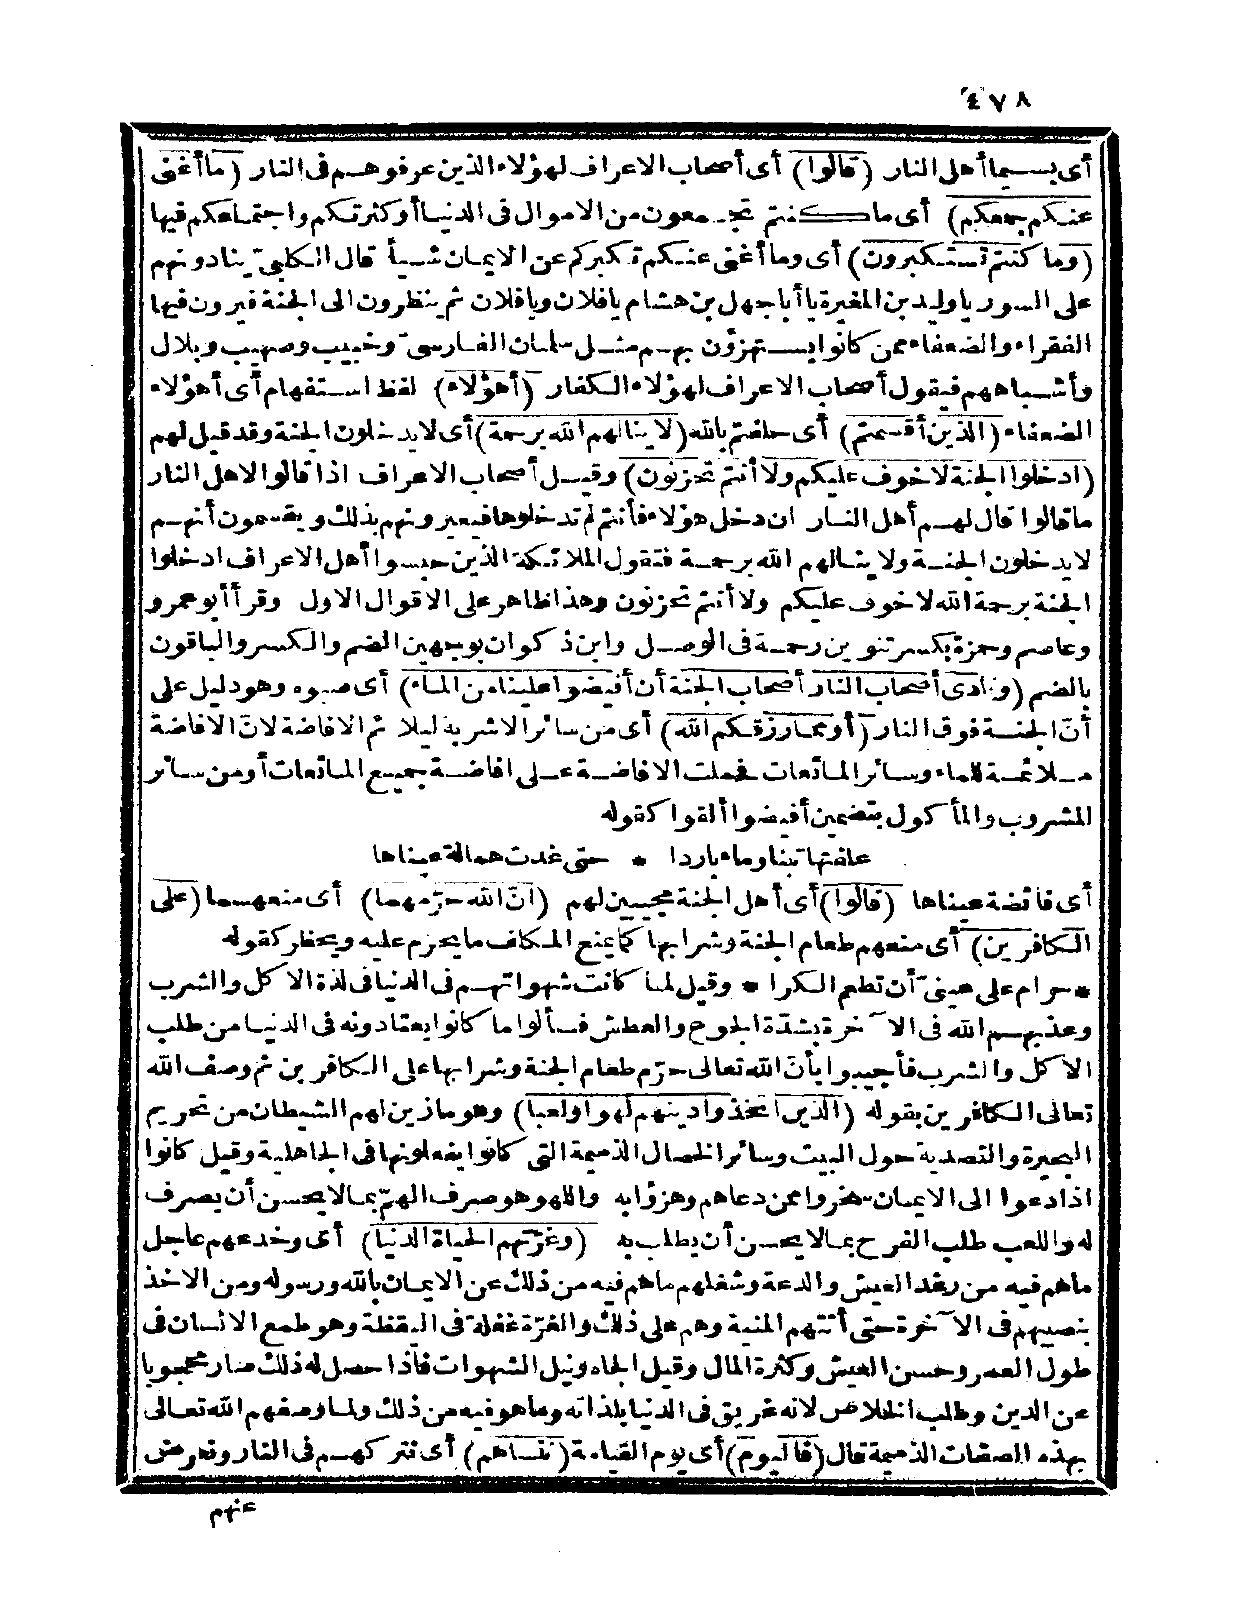 ٤٧٨
أى بسيما أهل النار (قالوا) أى أصحاب الاعراف لهؤلاء الذين عرفوهم فى النار (ما أغنى
عنكم جمعكم) أى ما كنتم تجمعون من الاموال فى الدنيا أو كثرتكم واجتماعكم فيها
(وما كنتم تستكبرون) أى وما أغنى عنكم تكبركم عن الايمان شيأ قال الكلبىّ ينادونهم
على السور يا وليد بن المغيرة يا أبا جهل بن هشام يا فلان ويا فلان ثم ينظرون الى الجنة فيرون فيها
الفقراء والضعفاء ممن كانوا يستهزؤن بهم مثل سلمان الفارسىّ وخبيب وصهيب وبلال
وأشباههم فيقول أصحاب الاعراف لهؤلاء الكفار (أهؤلاء) لفظ استفهام أى أهؤلاء
الضعفاء (الذين أقسمتم) أى حلفتم بالله (لا ينالهم الله برحمة) أى لا يدخلون الجنة وقد قيل لهم
(ادخلوا الجنة لا خوف عليكم ولا أنتم تحزنون) وقيل أصحاب الاعراف اذا قالوا لاهل النار
ما قالوا قال لهم أهل النار ان دخل هؤلاء فأنتم لم تدخلوها فيعيرونهم بذلك ويقسمون أنهم
لا يدخلون الجنة ولا ينالهم الله برحمة فتقول الملائكة الذين حبسوا أهل الاعراف ادخلوا
الجنة برحمة الله لا خوف عليكم ولا أنتم تحزنون وهذا ظاهر على الاقوال الاول وقرأ أبو عمرو
وعاصم وحمزة بكسر تنوين رحمة فى الوصل وابن ذكوان بوجهين الضم والكسر والباقون
بالضم (ونادى أصحاب النار أصحاب الجنة أن أفيضوا علينا من الماء) أى صبوه وهو دليل على
أنّ الجنة فوق النار (أو مما رزقكم الله) أى من سائر الاشربة ليلائم الافاضة لانّ الافاضة
ملائمة للماء وسائر المائعات فحملت الافاضة على افاضة جميع المائعات أو من سائر
المشروب والمأكول بتضمين أفيضوا ألقوا كقوله
علفتها تبنا وماء باردا * حتى غدت همالة عيناها
أى فائضة عيناها (قالوا) أى أهل الجنة مجيبين لهم (انّ الله حرّمهما) أى منعهما (على
الكافرين) أى منعهم طعام الجنة وشرابها كما يمنع المكلف ما يحرم عليه ويحظر كقوله
*حرام على عينىّ أن تطعم الكرا* وقيل لما كانت شهواتهم فى الدنيا فى لذة الاكل والشرب
وعذبهم الله فى الآخرة بشدّة الجوع والعطش فسألوا ما كانوا يعتادونه فى الدنيا من طلب
الاكل والشرب فأجيبوا بأنّ الله تعالى حرّم طعام الجنة وشرابها على الكافرين ثم وصف الله
تعالى الكافرين بقوله (الذين اتخذوا دينهم لهوا ولعبا) وهو ما زين لهم الشيطان من تحريم
البحيرة والتصدية حول البيت وسائر الخصال الذميمة التى كانوا يفعلونها فى الجاهلية وقيل كانوا
اذا دعوا الى الايمان سخروا ممن دعاهم وهزؤا به واللهو هو صرف الهمّ بما لا يحسن أن يصرف
له واللعب طلب الفرح بما لا يحسن أن يطلب به (وغرّتهم الحياة الدنيا) أى وخدعهم عاجل
ما هم فيه من رغد العيش والدعة وشغلهم ما هم فيه من ذلك عن الايمان بالله ورسوله ومن الاخذ
بنصيبهم فى الآخرة حتى أتتهم المنية وهم على ذلك والغرّة غفلة فى اليقظة وهو طمع الانسان فى
طول العمر وحسن العيش وكثرة المال وقيل الجاه ونيل الشهوات فاذا حصل له ذلك صار محجوبا
عن الدين وطلب الخلاص لانه غريق فى الدنيا بلذاته وما هو فيه من ذلك ولما وصفهم الله تعالى
بهذه الصفات الذميمة قال (فاليوم) أى يوم القيامة (ننساهم) أى نتركهم فى النار ونعرض
عنهم